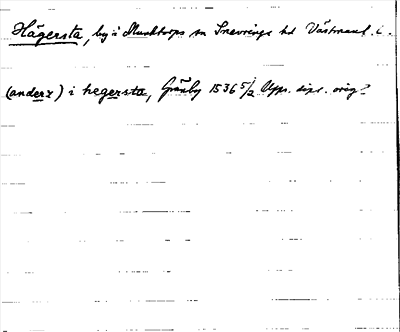 Hägersta, by i Munktorps sn Snevringe hd Västmanl. l.
(anderx) i hegersta, Gränby 1536 5/1 Upps. dipl. orig?